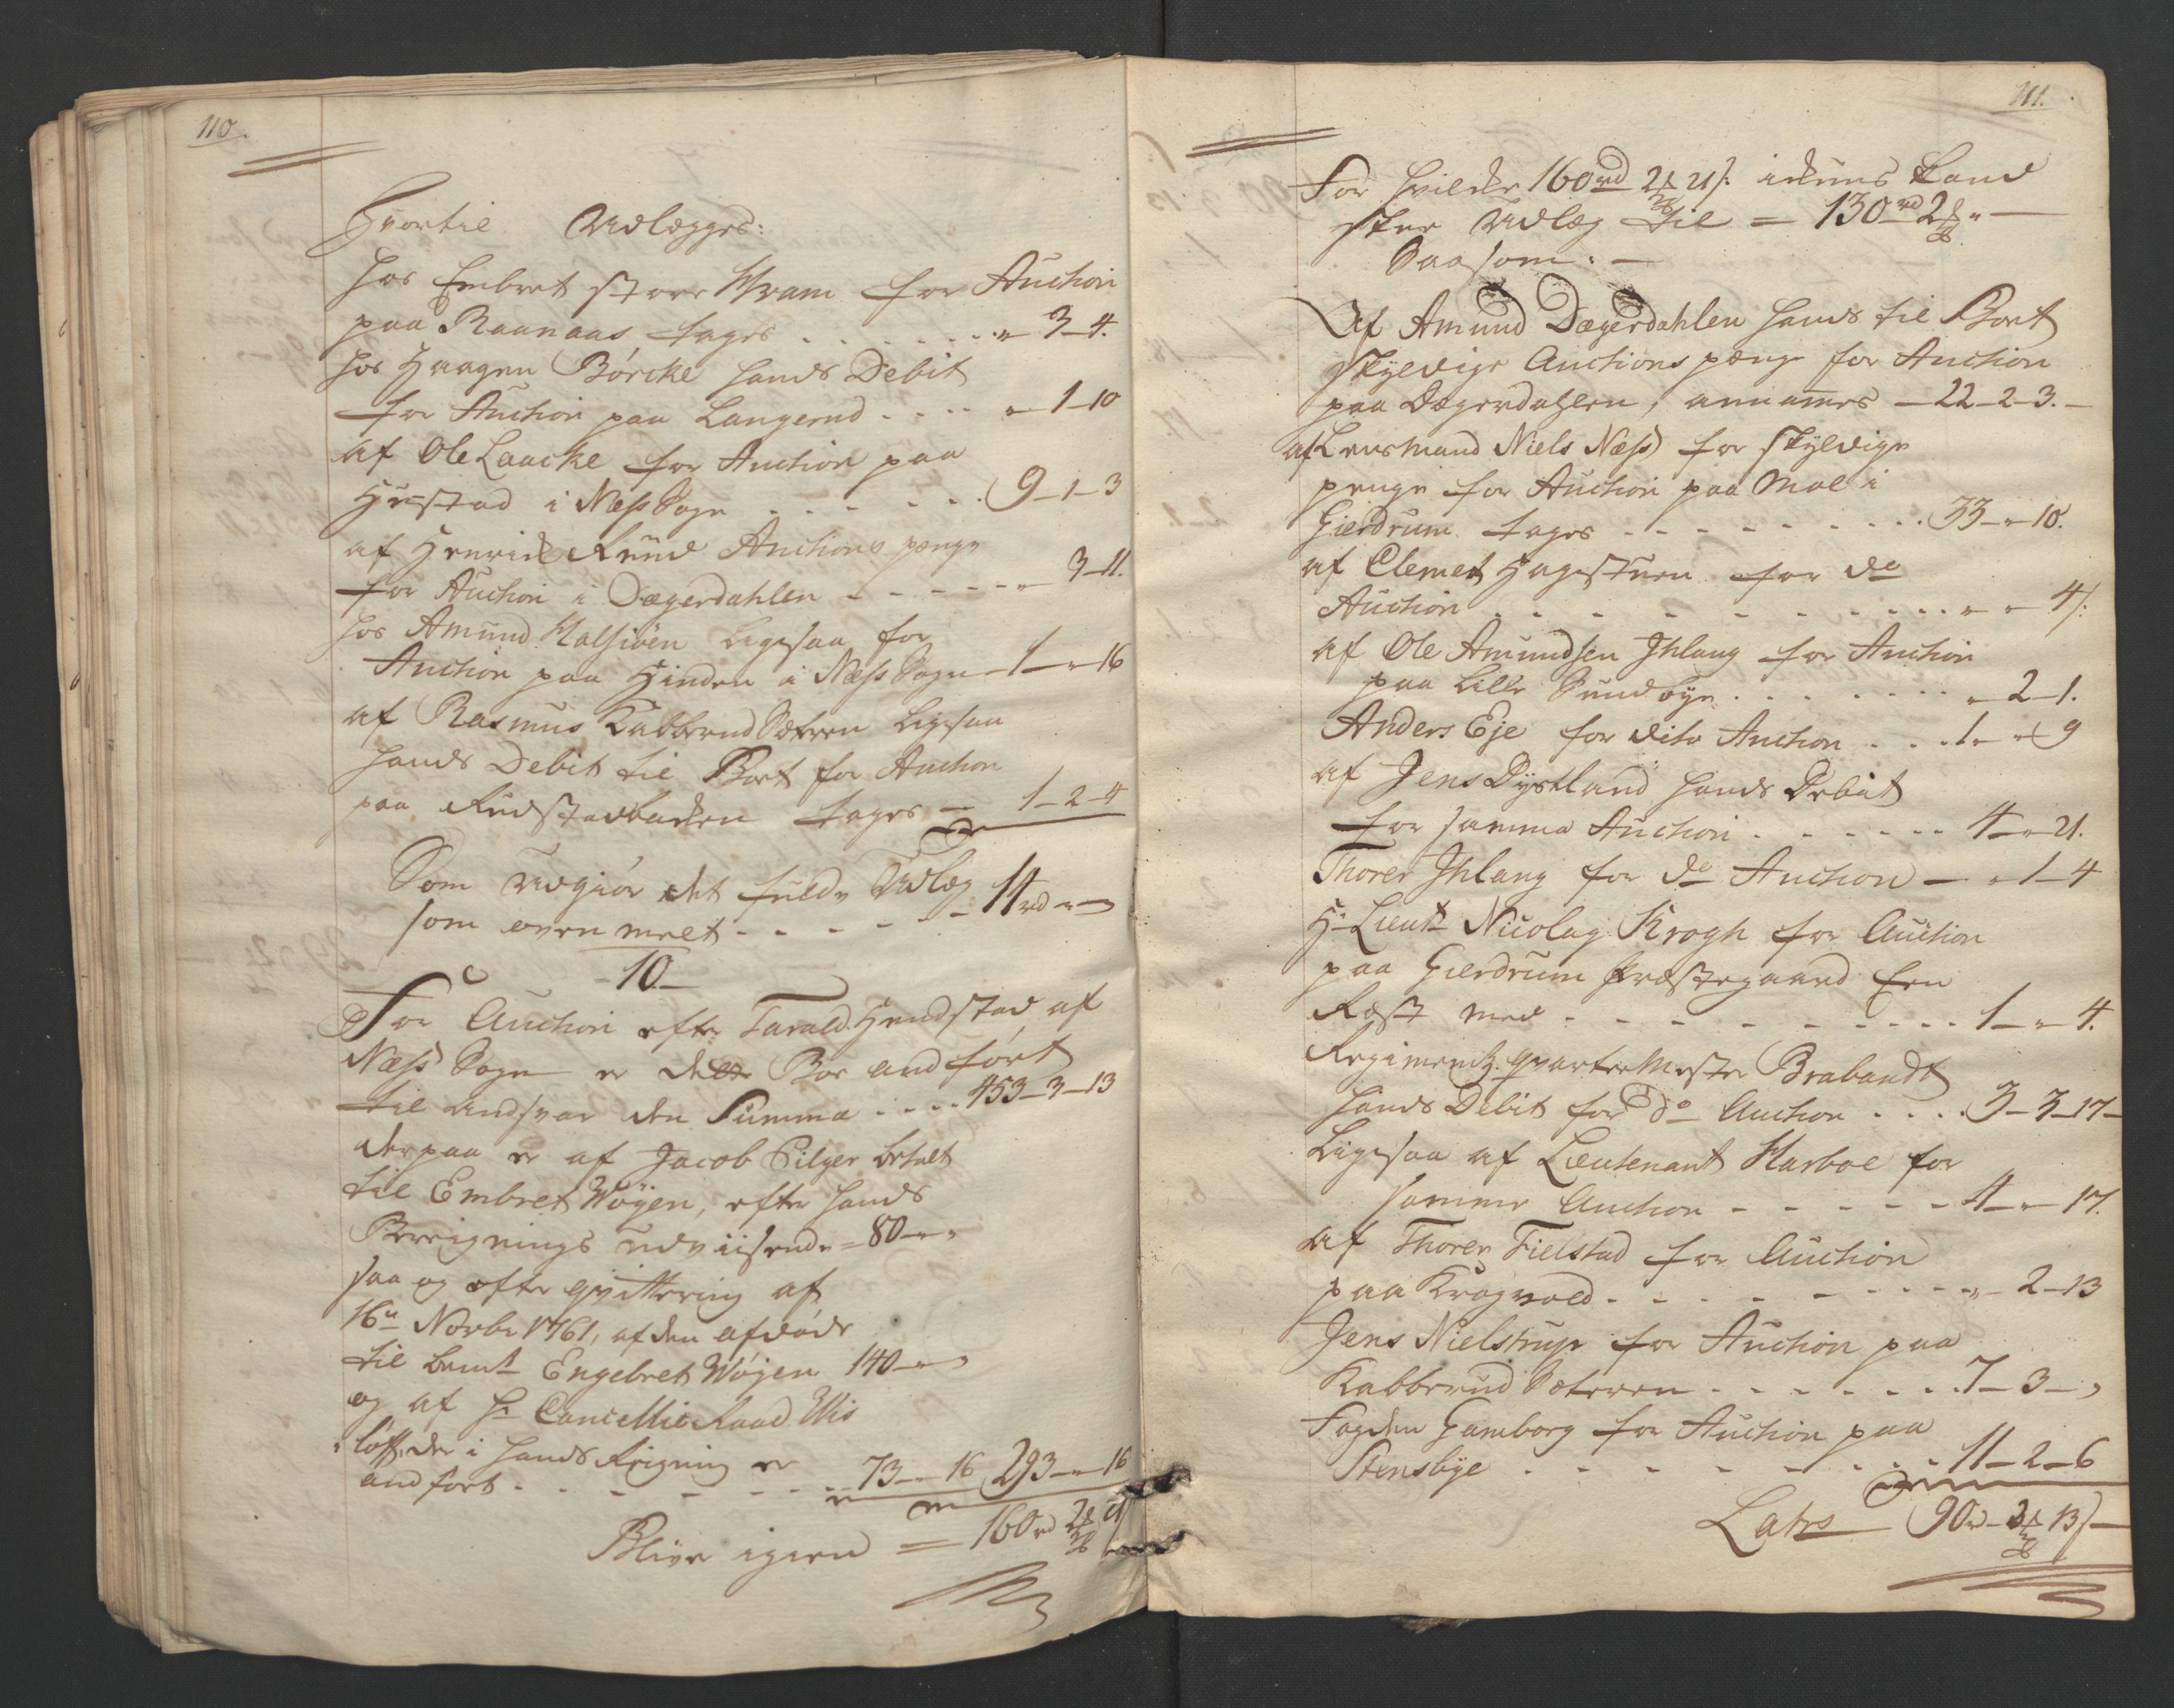 110.
Hvortil Udlægges:
hos Embret store Hvam for Auction
paa Raanaas, tages . . . . . . . " 3 - 4.
hos Haagen Börcke hands Debit
for Auction paa Langerud - - - - " - 1 - 10
af Ole Laacke for Auction paa
Hustad i Næss Sogn - - - - - - 9 - 1 - 3
af Henrich Ruud Auctions penge
for Auction i Dægerdahlen - - - - - " 3 - 11.
hos Amund Halsiöen Ligesaa for
Auction paa Hinden i Næss Sogn - 1 - " - 16
af Rasmus Kabberud Sætren Ligesaa
hands Debit til Boet for Auction
paa Rudstadbacken tages - 1 - 2 - 4
Som udgiör det fulde Udlæg
som oven melt - - - - - - 14 rd " - "
- 10 -
For Auction efter Tarald Hundstad af
Næss Sogn er dette Boe andfört
til andsvar den Summa - - - - 453 - 3 - 13
derpaa er af Jacob Pilger betalt
til Embret Wöyen, efter hands
Bereignings udviisende = 80 - " - "
saa og efter qvittering af
16de Novbr 1761, af den afdöde
til bemte Engebret Wöjen 140 - " - "
og af Hr Cancellie Raad Wis
löff, der i hands Reigning er
andfört - - - - - - 73 - " - 16 293 - " - 16
Bliver igien = 160 rd 2 21
111.
For hvilcke 160 rd 2 21 s. ickuns kand
skee Udlæg til = 130 rd 2 " -
Saasom. -
Af Amund Dægerdahlen hands til Boet
skyldige Auctions penge for Auction
paa Dægerdahlen, annammes - 22 - 2 - 3. -
af Lensmand Niels Næss for skyldige
penge for Auction paa Moe i
Gierdrum tages - - - - - - - - - 33 - " - 10.
af Clemet Hagestuen for do
Auction - - - - - - - - - - " - " - 4 s.
af Ole Amundsen Ihlang for Auction
paa Lille Sundbye - - - - - - - " - 2 - 1.
Anders Eje for dito Auction - - - 1 - " - 9
af Jens Dystland hands Debit
for samme Auction - - - - - - 4 - " - 21.
Thorer Ihlang for do Auction - - " 1 - 4
Hr Lieutt Nicolay Krogh for Auction
paa Gierdrum Præstegaard Een
Rest med - - - - - - - - - - 1 - " - 4.
Regimentz qvarteer Mester Brabandt
hands Debit for do Auction - - - 3 - 3 - 17 -
Ligesaa af Lieutenant Harboe for
samme Auction - - - - - - 4 - " - 17.
af Thorer Fielstad for Auction
paa Krogvold - - - - - - - - - " - 2 - 13
Jens Nielstrup for Auction paa
Kabberud Sæteren - - - - - - - 7 - 3 - "
Fogden Gamborg for Auction paa
Stensbye - - - - - - - - - 11 - 2 - 6
Latus 90 rd - 3 13 s -